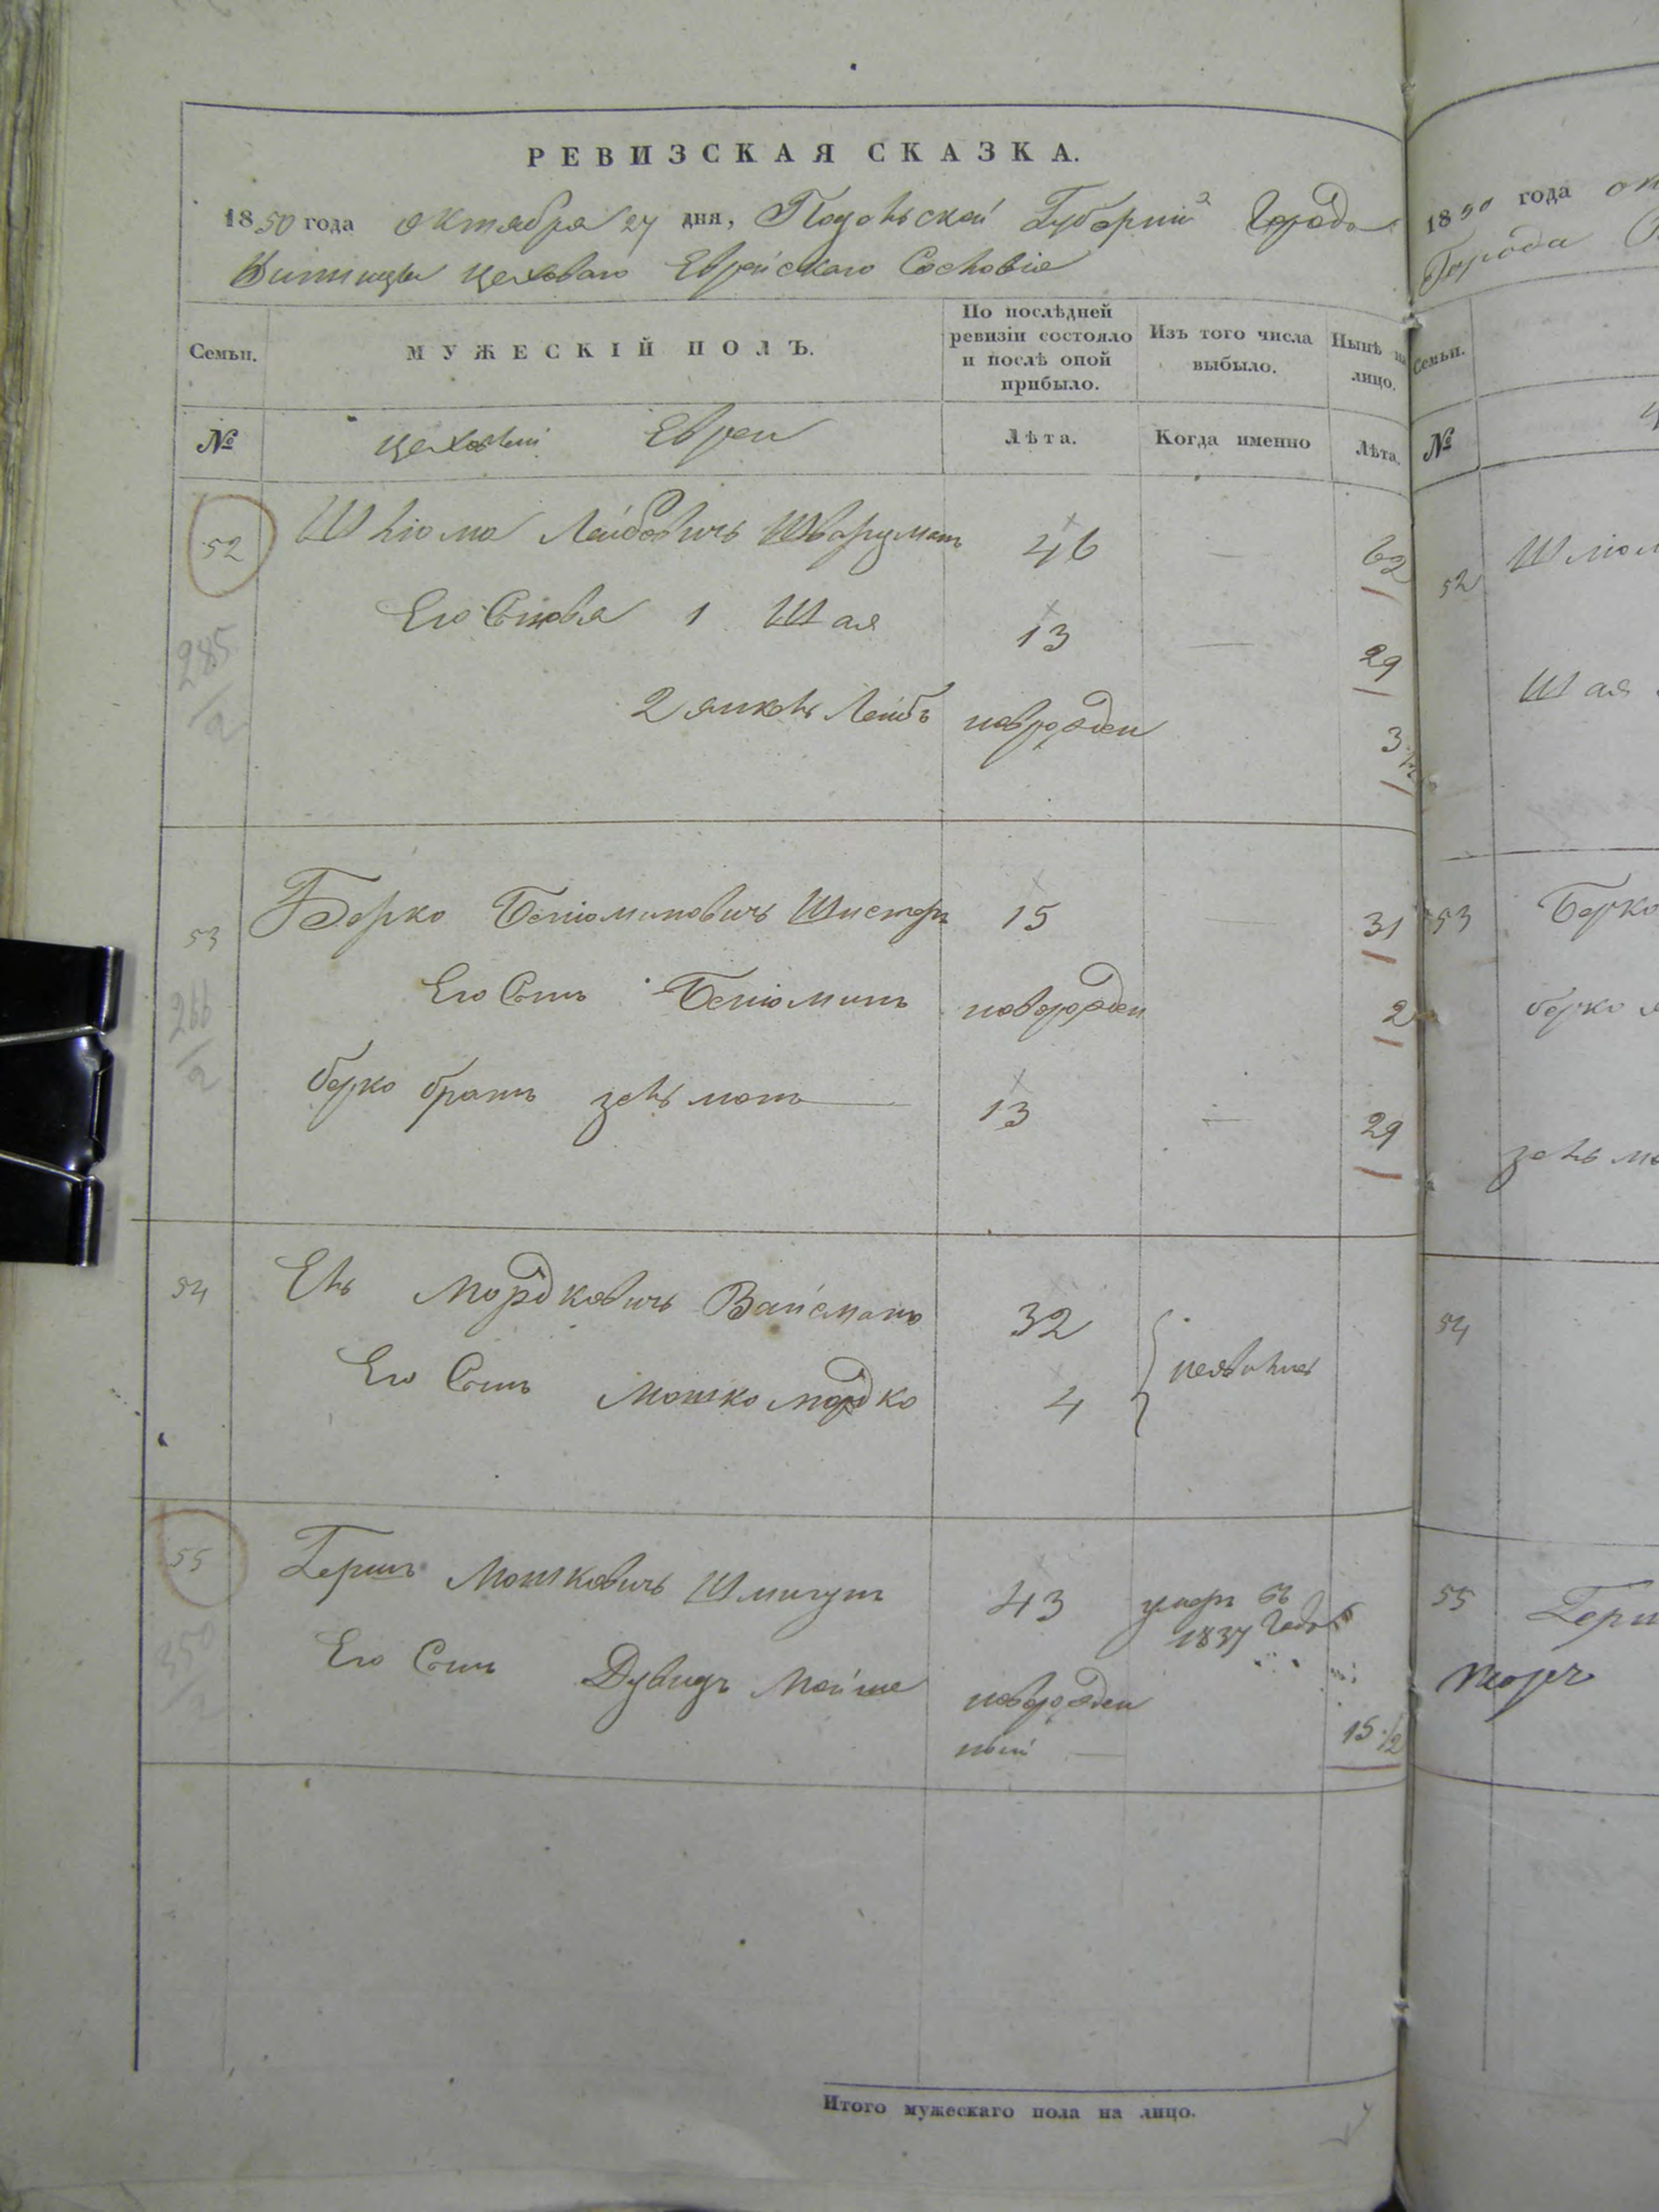 РЕВИЗСКАЯ СКАЗКА.
1850 года октября 27 дня, Подольской Губернии Города
Винницы цеховаго Еврейскаго Сословія
Семьи.
МУЖЕСКІЙ ПОЛЪ.
По послѣдней
ревизіи состояло
и послѣ оной
прибыло.
Изъ того числа
выбыло.
Нынѣ на
лицо.
№
цеховыи Евреи
Лѣта.
Когда именно
Лѣта.
52
Шлюма Лейбовичъ Шварцманъ 46 — 62
Его Сыновя 1 Шая 13 — 29
2 янкель Лейбъ наврожден 3 1/2
285/2
53
Берко Бенюминовичъ Шистеръ 15 — 31
Его Сынъ Бенюминъ новорожден 2
берко братъ зельманъ — 13 — 29
266/2
54
Ель Мордковичъ Вайсманъ 32
Его Сынъ Мошко мордко 4
неявилис
55
Гершъ Мошковичъ Шмигунъ 43 умеръ въ
1837 Году
Его Сынъ Дувидъ Мойше новорожден
ный — 15 1/2
350/2
Итого мужескаго пола на лицо.
1850 года
Города
Семьи.
№
52
Шлюм
Шая
53
Берко
берко
зельма
54
55
Герш